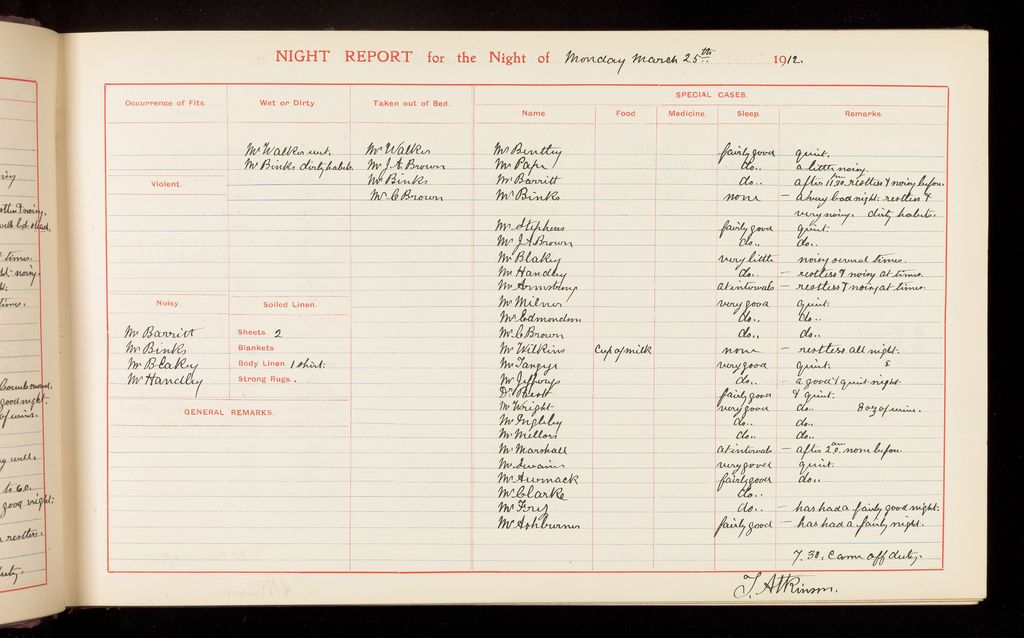 NIGHT REPORT for the Night of Monday March 25th 1912.
SPECIAL CASES.
Occurrence of Fits. Wet or Dirty. Taken out of Bed. Name. Food. Medicine. Sleep. Remarks.
Mr Walker wet. Mr Walker Mr Bentley fairly good quiet.
Mr Binks dirty habits. Mr J.A. Brown Mr Pape do.. a little noisy.
Violent. Mr Binks Mr Barritt do.. after 11.30 restless & noisy before
Mr C Brown Mr Binks none – a very bad night. restless &
very noisy. dirty habits.
Mr Stephens fairly good quiet.
Mr J.A Brown do.. do..
Mr Blakey very little noisy several times.
Mr Handley do.. – restless & noisy at times.
Mr Armstrong at intervals – restless & noisy at times.
Noisy. Soiled Linen. Mr Milner very good quiet.
Mr Edmondson do.. do..
Mr Barritt Sheets 2 Mr C Brown do.. do..
Mr Binks Blankets Mr Wilkins Cup of milk none – restless all night.
Mr Blakey Body Linen 1 shirt. Mr Tangye very good quiet.
Mr Handley Strong Rugs . Mr Jeffreys do.. – a good & quiet night
Dr fairly good & quiet.
GENERAL REMARKS. Mr Wright very good do.. 8 oz of urine.
Mr Ingleby do.. do..
Mr Mellors do.. do..
Mr Marshall at intervals – after 2.0 am none before
Mr Swain very good quiet.
Mr fairly good do..
Mr Clarke do..
Mr do.. – has had a fairly good night.
Mr Ashburner fairly good – has had a fairly night.
7.30. Came off duty.
T. Atkinson.